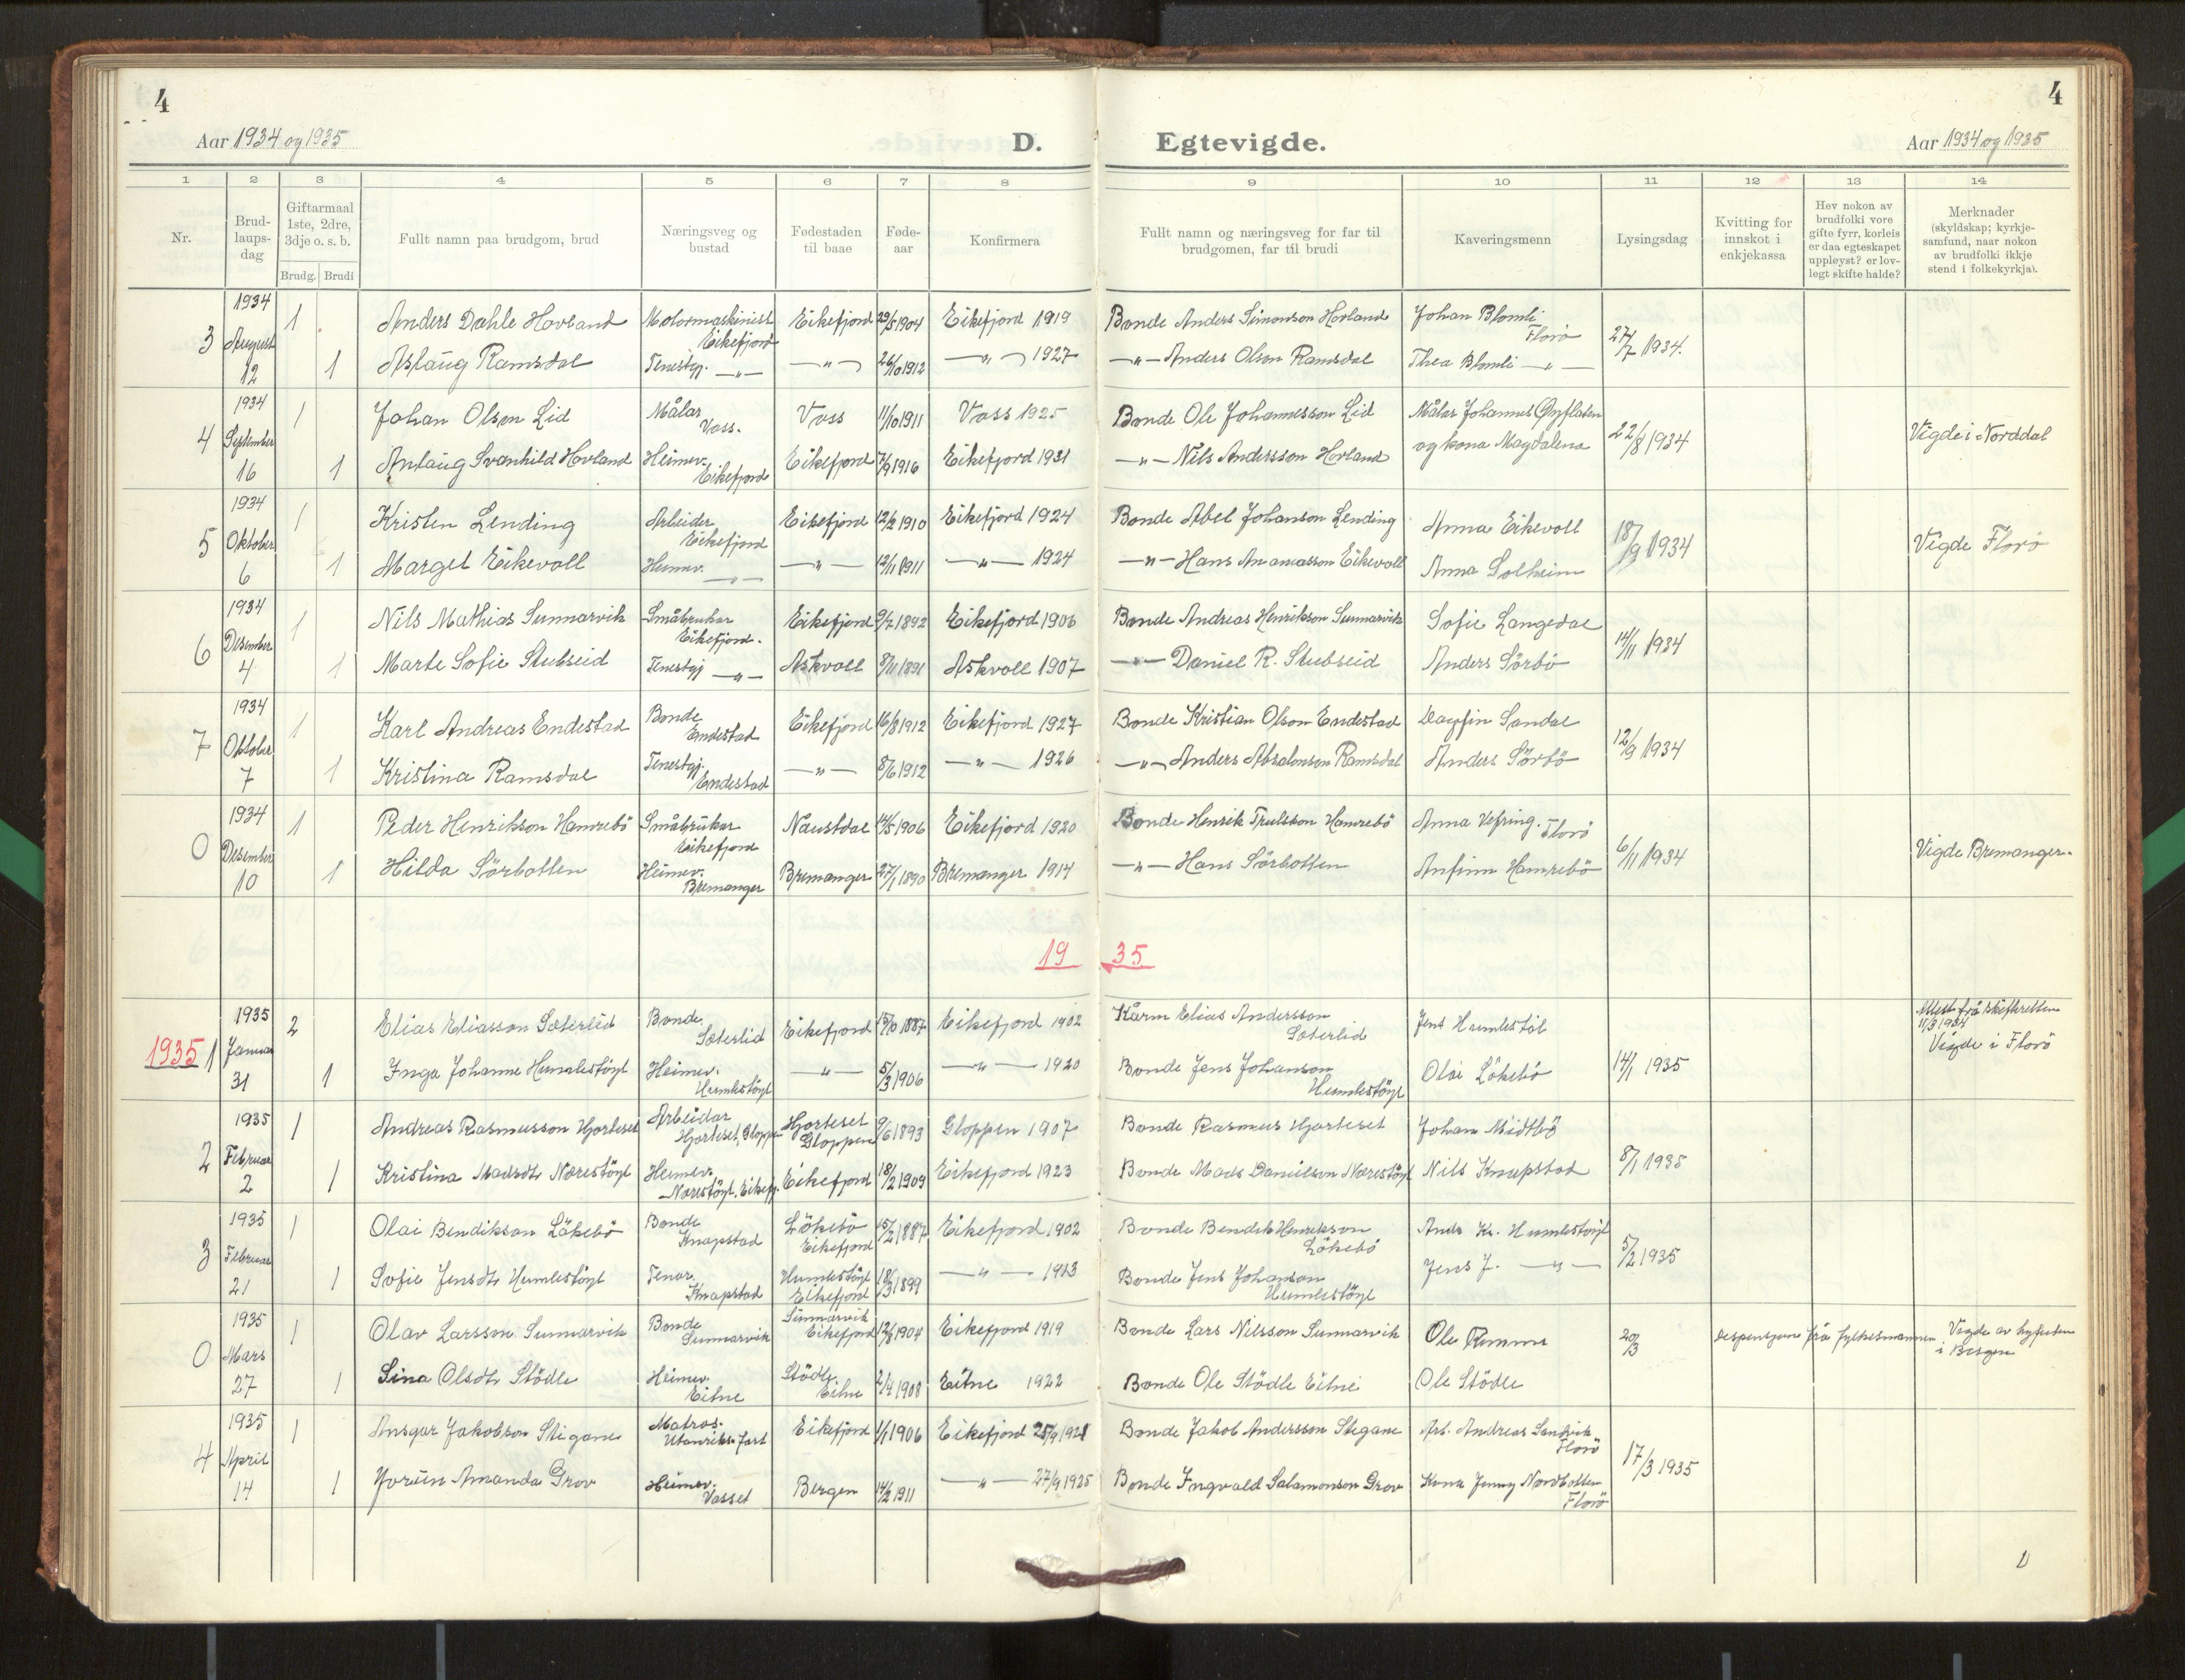 4
4
Aar 1934 og 1935
D. Egtevigde.
Aar 1934 og 1935
1 2 3 4 5 6 7 8 9 10 11 12 13 14
Nr.
Brud-
laups-
dag
Giftarmaal
1ste, 2dre,
3dje o. s. b.
Brudg. Brudi
Fullt namn paa brudgom, brud
Næringsveg og
bustad
Fødestaden
til baae
Føde-
aar
Konfirmera
Fullt namn og næringsveg for far til
brudgomen, far til brudi
Kaveringsmenn
Lysingsdag
Kvitting for
innskot i
enkjekassa
Hev nokon av
brudfolki vore
gifte fyrr, korleis
er daa egteskapet
uppleyst? er lov-
legt skifte halde?
Merknader
(skyldskap; kyrkje-
samfund, naar nokon
av brudfolki ikkje
stend i folkekyrkja).
3
1934
August
12
1 Anders Dahle Hovland Motormaskinist
Eikefjord
Eikefjord 29/5 1904 Eikefjord 1919 Bonde Anders Simonson Hovland Johan Blomli
Florö
27/7 1934.
1 Aslaug Ramsdal Tenestgj. —„— —„— 26/10 1912 —„— 1927 —„— Anders Olson Ramsdal Thea Blomli —„—
4
1934
September
16
1 Johan Olson Lid Målar
Voss.
Voss 11/10 1911 Voss 1925 Bonde Ole Johannesson Lid Målar Johannes
22/8 1934
Vigde i Norddal
1 Anlaug Svanhild Hovland Heimev.
Eikefjord
Eikefjord 7/9 1916 Eikefjord 1931 —„— Nils Andersson Hovland og kona Magdalena
5
1934
Oktober
6
1 Kristen Lending Arbeider
Eikefjord
Eikefjord 12/2 1910 Eikefjord 1924 Bonde Abel Johanson Lending Anna Eikevoll
18/9 1934
Vigde Florö
1 Marget Eikevoll Heimev. —„— —„— 12/11 1911 —„— 1924 —„— Hans Ananiasson Eikevoll Anna Solheim
6
1934
Desember
4
1 Nils Mathias Sunnarvik Småbrukar
Eikefjord.
Eikefjord 9/7 1892 Eikefjord 1906 Bonde Andreas Henrikson Sunnarvik Sofie Langedal
14/11 1934
1 Marte Sofie Stubseid Tenestgj —„— Askvoll 8/11 1891 Askvoll 1907 —„— Daniel R. Stubseid Anders Sörbö
7
1934
Oktober
7
1 Karl Andreas Endestad Bonde
Endestad
Eikefjord 16/8 1912 Eikefjord 1927 Bonde Kristian Olson Endestad Dagfin Sandal
12/9 1934
1 Kristina Ramsdal Tenestgj.
Endestad
—„— 8/6 1912 —„— 1926 —„— Anders Absalonson Ramsdal Anders Sörbö
0
1934
Desember
10
1 Peder Henrikson Hamrebö Småbrukar
Eikefjord
Naustdal 14/5 1906 Eikefjord 1920 Bonde Henrik Trulsson Hamrebö Anna Vefring.
Florö
6/11 1934
Vigde Bremanger.
1 Hilda Sörbotten Heimev.
Bremanger
Bremanger 27/1 1890 Bremanger 1914 —„— Hans Sörbotten Anfinn Hamrebö
19 35
1935 1
1935
Januar
31
2 Elias Eliasson Sæterlid Bonde
Sæterlid
Eikefjord 1887 Eikefjord 1902 Kårm Elias Andersson
Sæterlid
Jens Humlestöl
14/1 1935
Attest frå skifteretten
11/3 1934
Vigde i Florö
1 Inga Johanne Humlestöyl Heimev.
Humlestöyl
—„— 5/3 1906 —„— 1920 Bonde Jens Johanson
Humlestöyl
Olai Lökebö
2
1935
Februar
2
1 Andreas Rasmusson Hjorteset Arbeidar
Hjorteset, Gloppen
Hjorteset
Gloppen
9/6 1893 Gloppen 1907 Bonde Rasmus Hjorteset Johan Midtbö
8/1 1935
1 Kristina Madsdtr Nærestöyl Heimev.
Nærestöyl. Eikefj.
Eikefjord 18/2 1909 Eikefjord 1923 Bonde Mads Danielson Nærestöyl Nils Knapstad
3
1935
Februar
21
1 Olai Bendikson Lökebö Bonde
Knapstad
Lökebö
Eikefjord
15/2 1887 Eikefjord 1902 Bonde Bendik Henrikson
Lökebö
Andr Kr. Humlestöyl
5/2 1935
1 Sofie Jensdtr Humlestöyl Tenar.
Knapstad
Humlestöyl
Eikefjord
18/3 1899 —„— 1913 Bonde Jens Johanson
Humlestöyl
Jens J. —„—
0
1935
Mars
27
1 Olav Larsson Sunnarvik Bonde
Sunnarvik
Sunnarvik
Eikefjord
12/8 1904 Eikefjord 1919 Bonde Lars Nilsson Sunnarvik Ole
20/3
despensjon frå fylkesmannen
Vigde av byfuten
i Bergen
1 Sina Olsdtr Stödle Heimev.
Eitne
Stödle
Eitne
2/4 1908 Eitne 1922 Bonde Ole Stödle Eitne Ole Stödle
4
1935
April
14
1 Ansgar Jakobson Stigane Matros.
Utanriks fart
Eikefjord 1/1 1906 Eikefjord 25/9 1921 Bonde Jakob Andersson Stegane Arb. Andreas Sandvik
Florö
17/3 1935
1 Jorun Amanda Grov Heimev.
Vasset
Bergen 14/2 1911 —„— 27/9 1925 Bonde Ingvald Salamonson Grov Kona Jenny Nordbotten
Florö